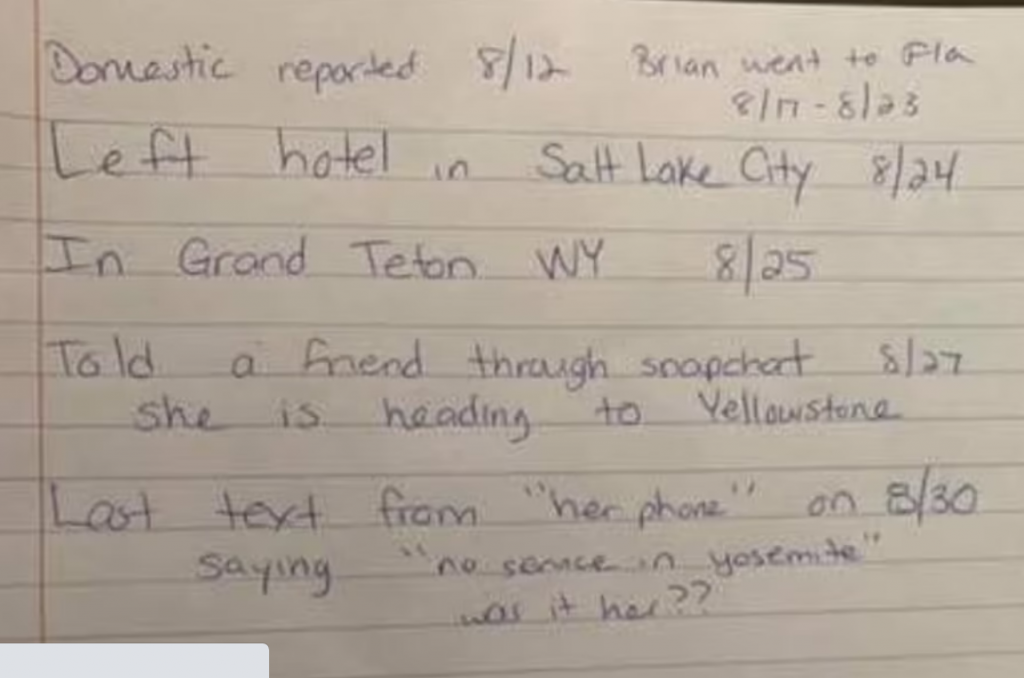 Domestic reported 8/12 Brian went to Fla
8/17 - 8/23
Left hotel in Salt Lake City 8/24
In Grand Teton WY 8/25
Told a friend through snapchat 8/27
she is heading to Yellowstone
Last text from "her phone" on 8/30
saying "no service in yosemite"
was it her??